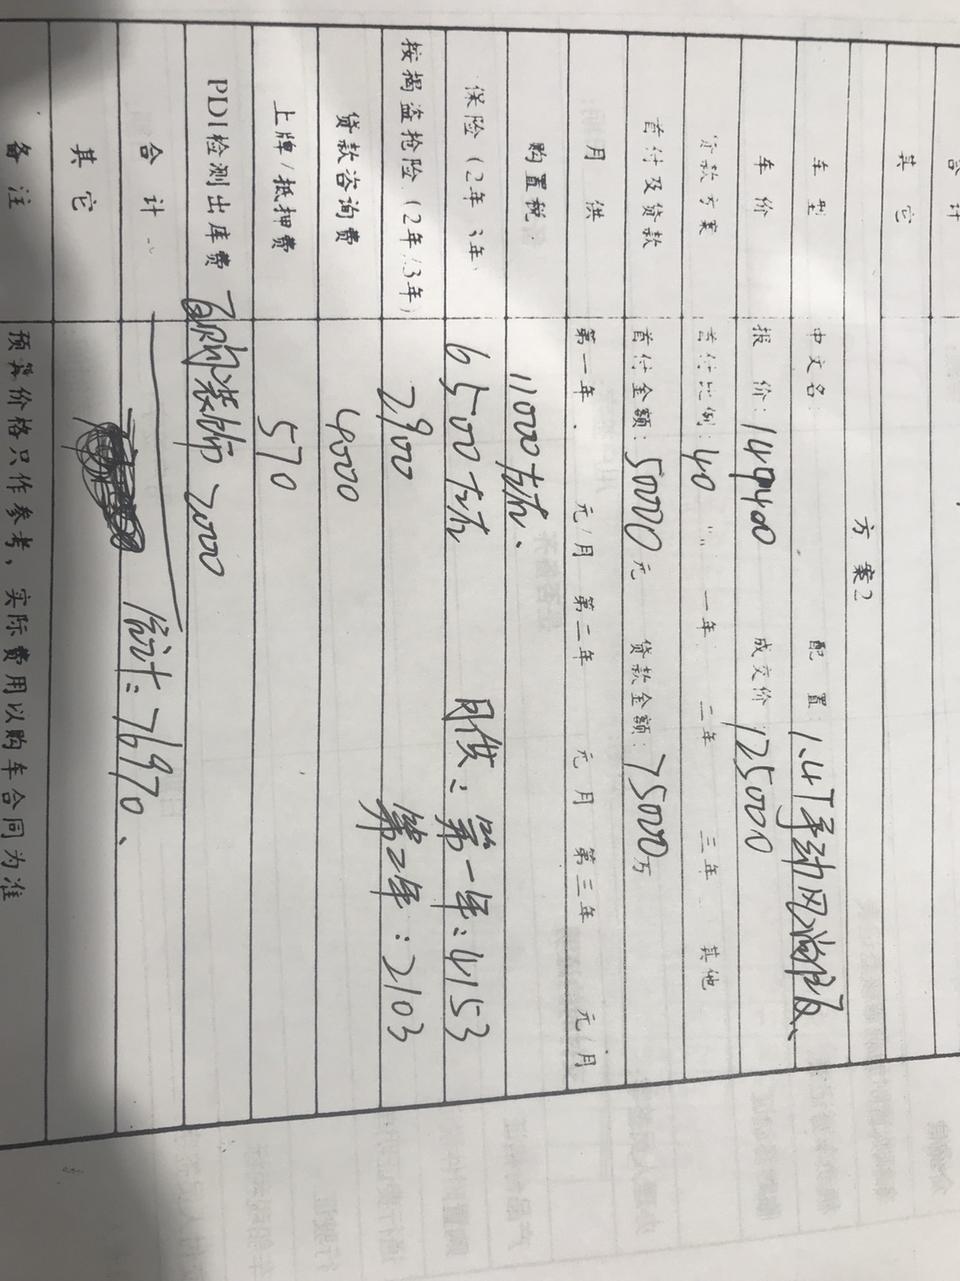 合计
其它
方案2
车型 中文名: 配置: 1.4T手动风尚版、
车价 报价: 149400 成交价 125000
贷款方案 首付比例: 40 一年 二年 三年 其他
首付及贷款 首付金额: 50000元 贷款金额: 75000万
月供 第一年 元/月 第二年 元 月 第三年 元/月
购置税: 11000左右.
保险(2年 3年) 6500左右 月供: 第一年: 4153
按揭盗抢险(2年/3年) 2900 第2年: 2103
贷款咨询费 4000
上牌/抵押费 570
PDI检测出库费 自购装饰 2000
合计 总计: 76970、
其它
备注 预算价格只作参考，实际费用以购车合同为准